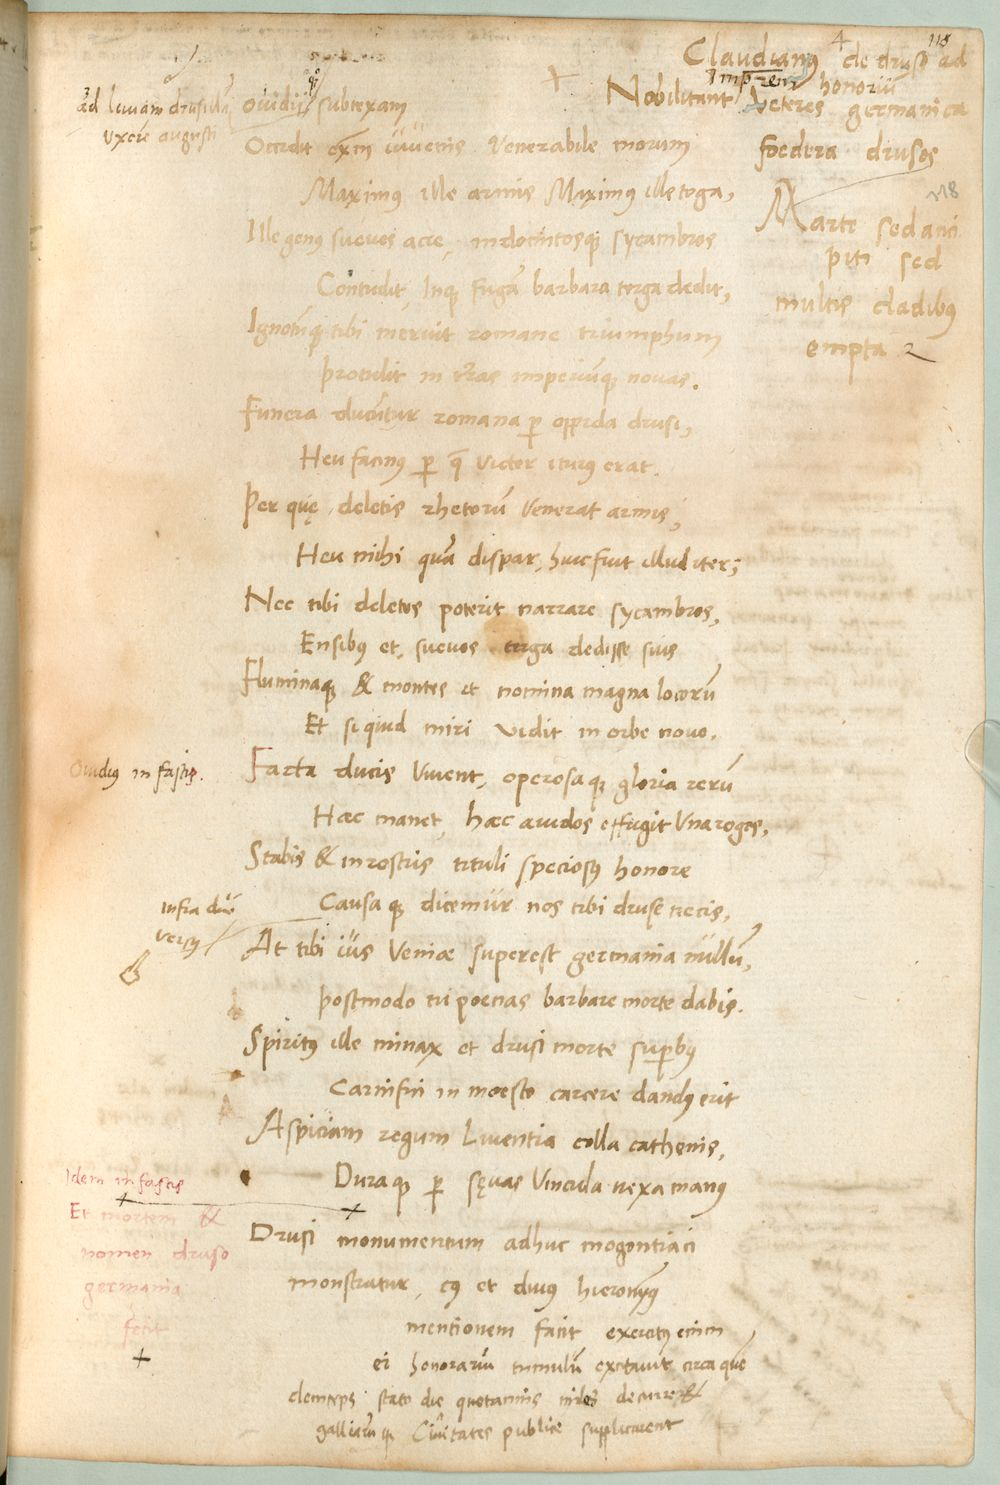 118
Claudianus de druso ad
Impre honoriu
Nobilitant veteres germanica
foedera drusos
118
Marte sed anci
piti sed
multis cladibus
empta
ad liuiam drusillā
vxore augusti
ouidij subtexam
Occidit exm iuuenis venerabile morum
Maximus ille armis Maximus ille toga,
Ille genus sueuos acre, indomitosque sycambros
Contudit, Inque fugā barbara terga dedit,
Ignotūque tibi meruit romane triumphum
Protulit in terras imperiūque nouas.
Funera ducūtur romana per oppida drusi,
Heu facinus per quę victor iturus erat.
Per quę deletis rhetorū venerat armis,
Heu mihi quā dispar, huic fuit illud iter;
Nec tibi deletos poterit narrare sycambros,
Ensibus et, sueuos terga dedisse suis
Fluminaque & montes et nomina magna locorū
Et si quid miri vidit in orbe nouo.
Ouidius in fastis.
Facta ducis viuent, operosaque gloria rerū
Haec manet, haec auidos effugit vna rogos,
Stabis & in rostris tituli speciosus honore
Causaque dicemur nos tibi druse necis,
Infra duo
versus
At tibi ius veniae superest germania nullū,
Postmodo tu poenas barbare morte dabis.
Spiritus ille minax et drusi morte superbus
Carnifici in moesto carcere dandus erit
Aspiciam regum liuentia colla cathenis,
Duraque per sęuas vincula nexa manus
Idem in fastis
Et mortem &
nomen druso
germania
fecit
Drusi monumentum adhuc mogontiaci
monstratur, cuius et diuus hieronymus
mentionem facit exercitus enim
ei honorariū tumulū excitauit circa quem
deinceps stato die quotannis miles decurreret
galliarūque Ciuitates publice supplicarent